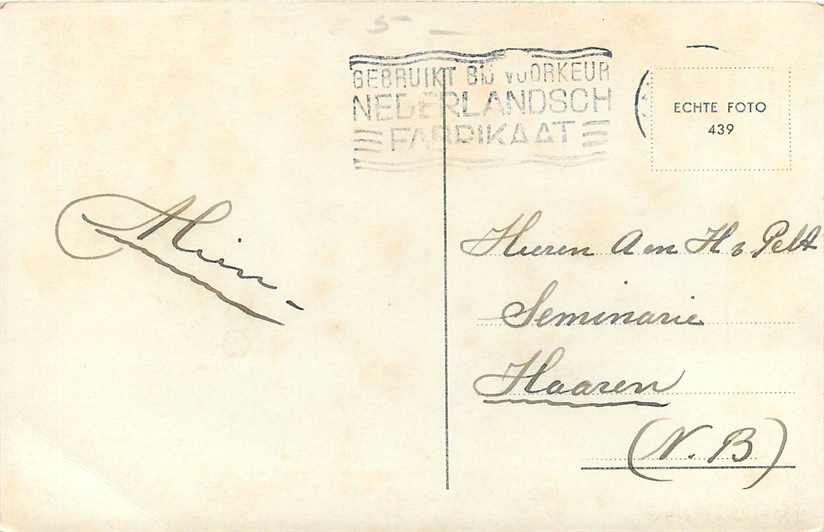 GEBRUIKT BIJ VOORKEUR
NEDERLANDSCH
FABRIKAAT
ECHTE FOTO
439
Mien
Heeren A en H v Pelt
Seminarie
Haaren
(N.B)